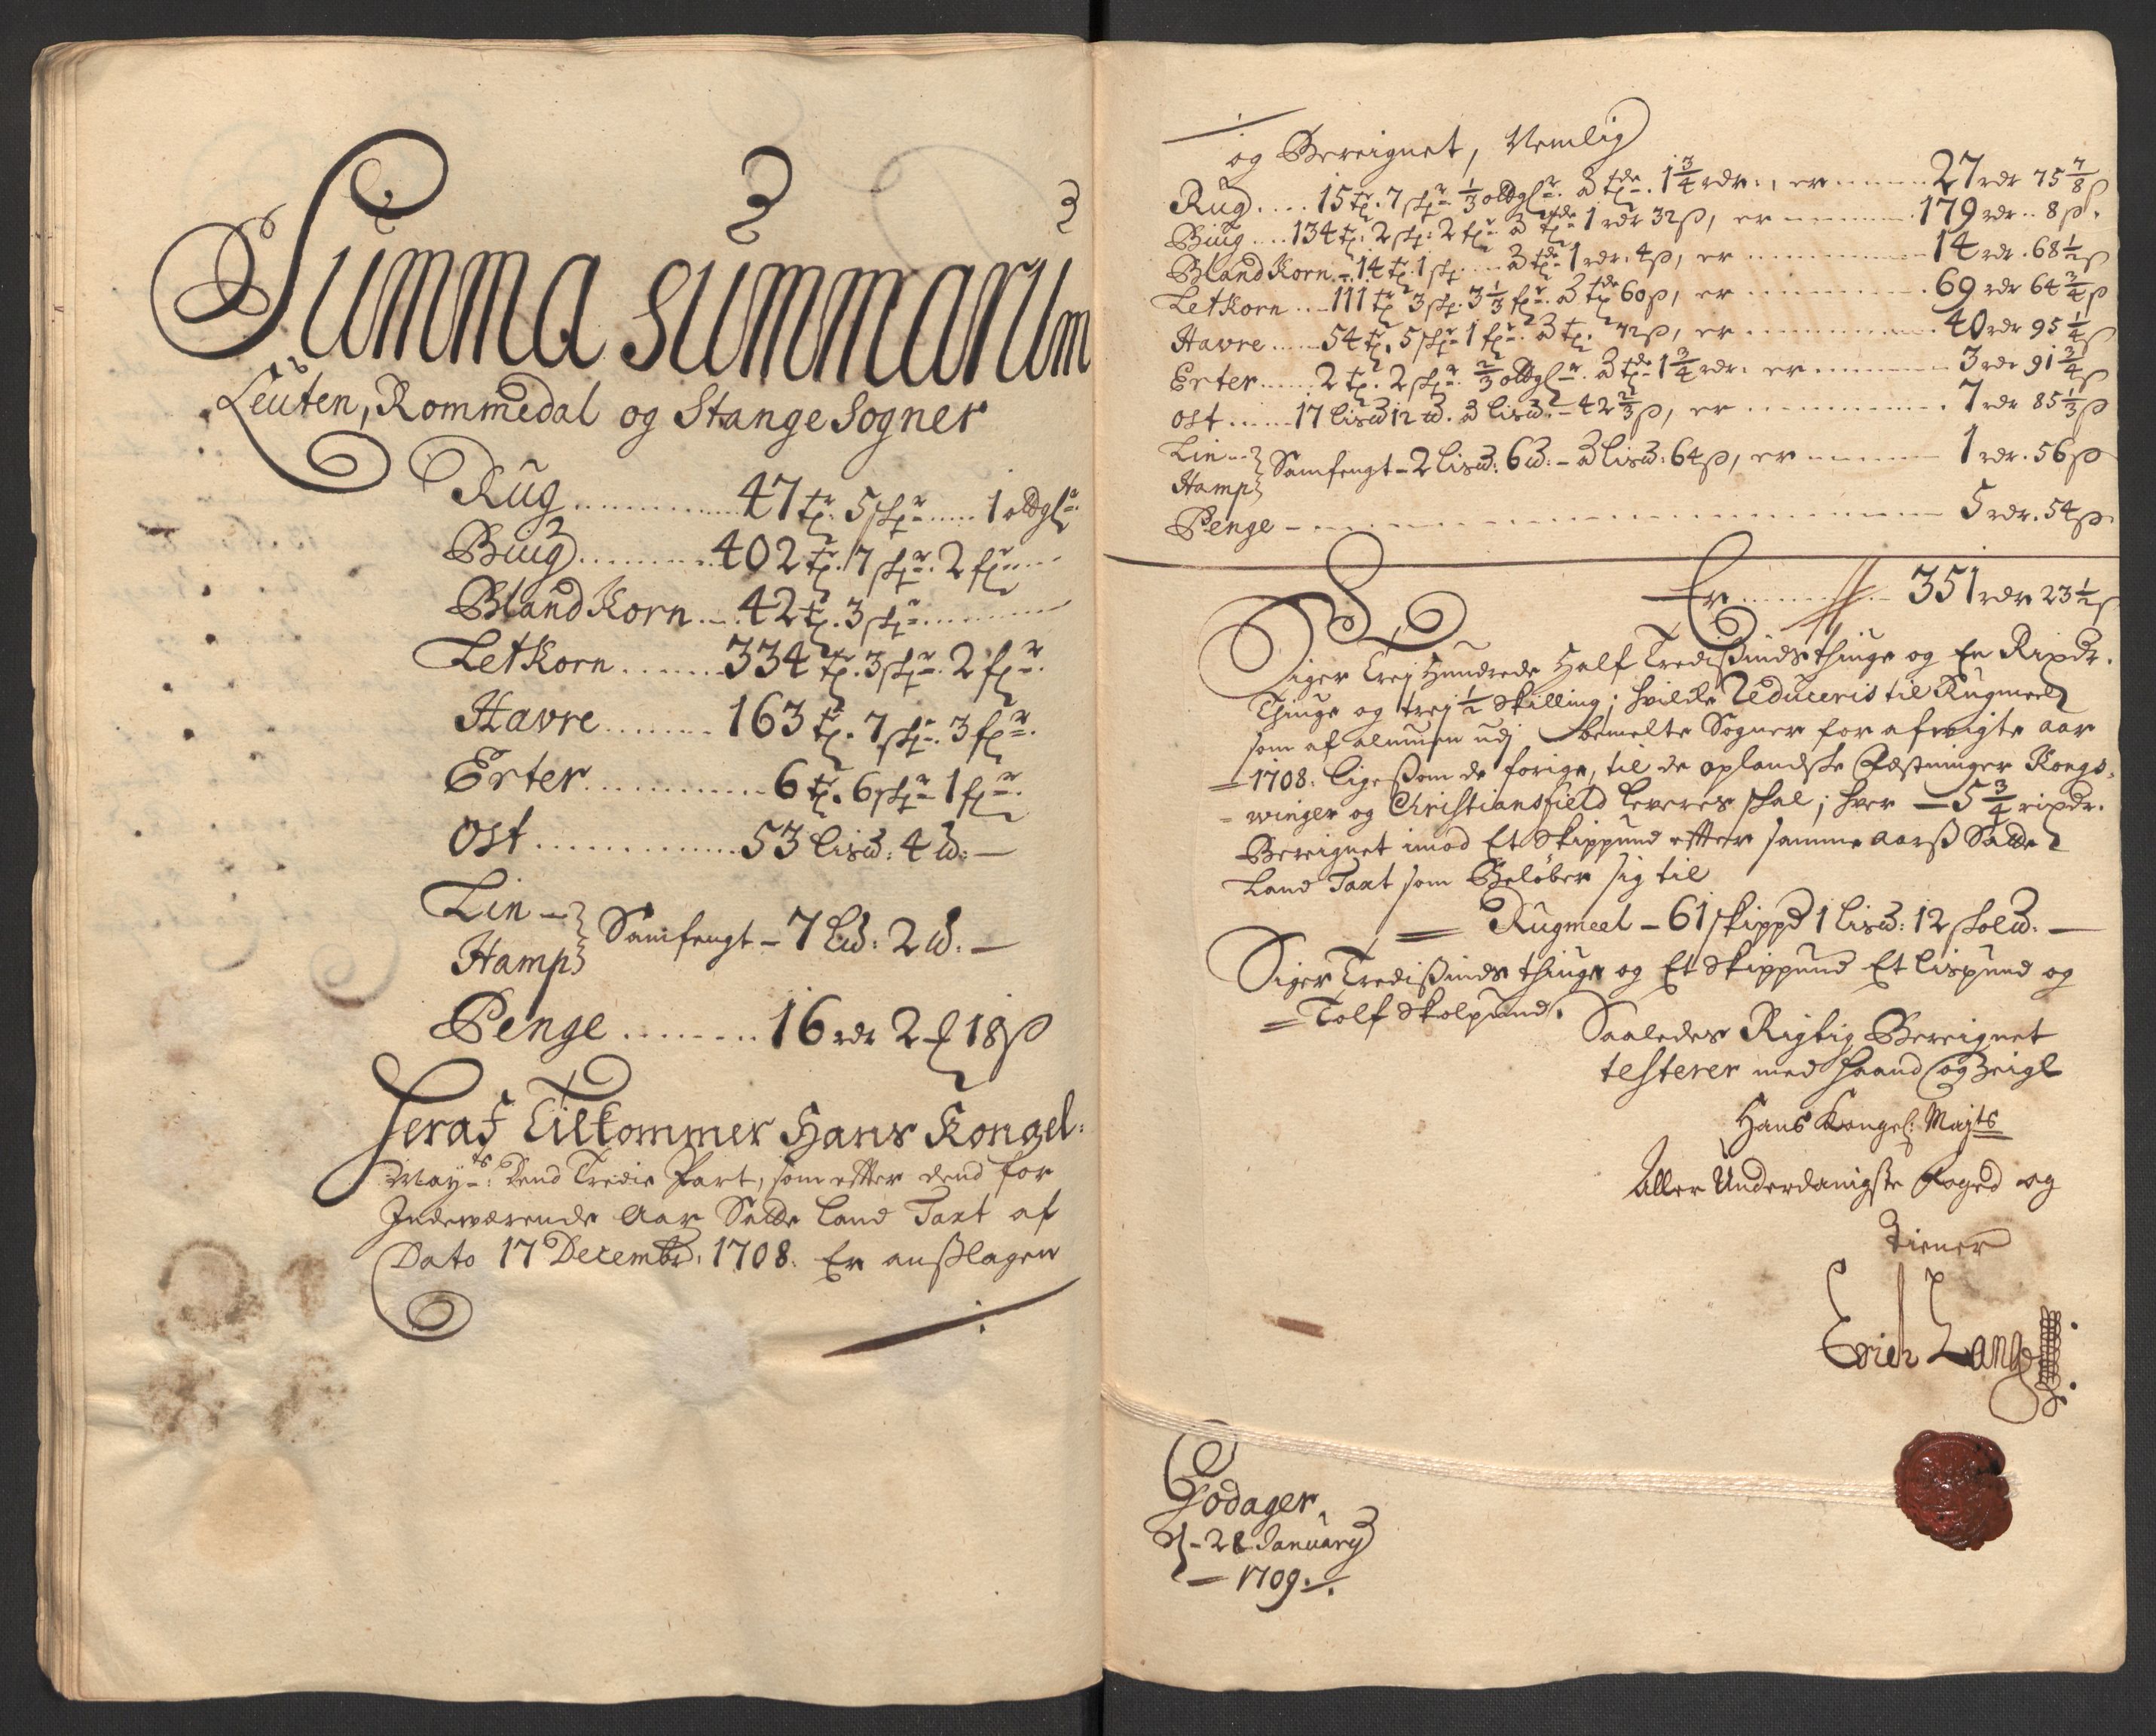 Summa Summarum
Leuten, Rommedal og Stange Sogner
Rug 47 tr. 5 skpr 1 oldglr
Biug 402 tr. 7 skpr. 2 fr
Bland Korn 42 tr. 3 skpr
Letkorn 334 tr. 3 skpr. 2 fr.
Havre 163 tr. 7 skpr. 3 fr.
Erter 6 tr. 6 skpr 1 fr.
Ost 53 lis℔: 4 ℔: —
Lin
Hamp } Samfengt – 7 L℔: 2 ℔. —
Penge 16 rdr 2 ƒ 18 ß
Heraf Tilkommer Hans Kongel:
Mayts: Dend Tredie Part, som efter dend for
Indeværende Aar Satte Land Taxt af
Dato 17 Decembr: 1708. Er anslagen
og Bereignet, Nemlig
Rug 15 tr. 7 skpr 1/3 oldglr. a tde. 1 3/4 rdr., er 27 rdr 75 7/8 ß
Biug 134 t: 2 sk: 2 fr a tde 1 rdr 32 ß, er 179 rdr 8 ß.
Bland Korn 14 t. 1 sk. a tde 1 rdr. 4 ß, er 14 rdr. 68 1/2 ß
Letkorn 111 tr 3 sk. 3 1/3 fr. a tde 60 ß, er 69 rdr 64 3/4 ß
Havre 54 tr. 5 skpr 1 fr. a t. 72 ß, er 40 rdr 95 1/2 ß
Erter 2 t. 2 skpr. 2/3 oldglr. a tde 1 3/4 rdr. er 3 rdr 91 3/4 ß
Ost 17 lis℔ 12 ℔. a lis℔. – 42 2/3 ß, er 7 rdr 85 1/3 ß
Lin
Hamp } Samfengt – 2 lis℔: 6 ℔: – a lis℔: 64 ß, er 1 rdr. 56 ß
Penge 5 rdr. 54 ß
Er 351 rdr 23 1/2 ß
Siger Trej Hundrede Half Tredisindsthiuge og En Rixdr.
Thiuge og trej 1/2 Skilling; hvilke Reduceris til Rugmeel
som af almuen udj bemelte Sogner for afvigte aar
1708. ligesom de forige, til de oplandske Fæstninger Kongs-
winger og Christiansfield leveres skal; hver — 5 3/4 rixdr.
Bereignet imod Et Skippund efter samme aars Satte
Land Taxt som Beløber sig til
Rugmeel – 61 skipp℔ 1 lis℔: 12 skol℔. —
Siger Tredisindsthiuge og Et Skippund Et lispund og
Tolf Skolpund.
Saaledes Rigtig Bereignet
testerer med Haand og Zeigl
Hans Kongel: Majts
Aller Underdanigste Foged og
Tiener
Erich Lang
Godager
d – 28 January
1709.